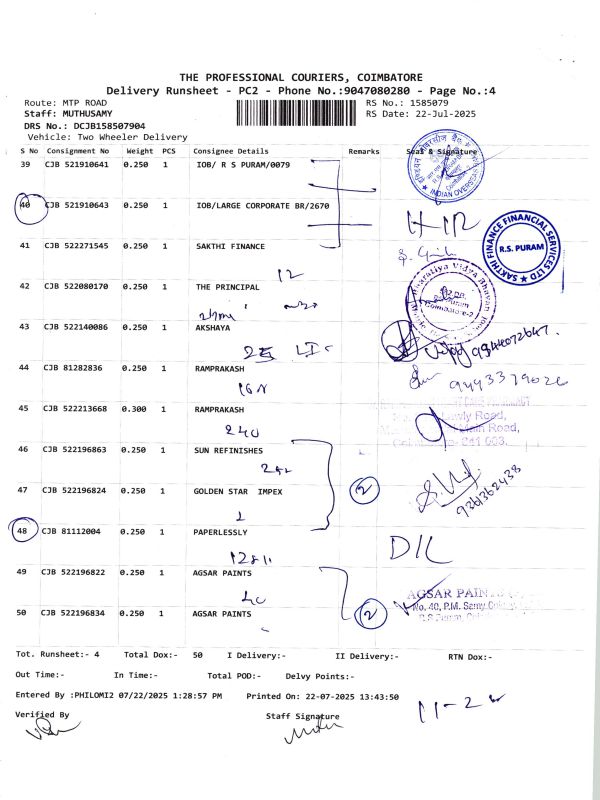 THE PROFESSIONAL COURIERS, COIMBATORE
Delivery Runsheet - PC2 - Phone No.:9047080280 - Page No.:4
Route: MTP ROAD
RS No.: 1585079
Staff: MUTHUSAMY
RS Date: 22-Jul-2025
DRS No.: DCJB158507904
Vehicle: Two Wheeler Delivery
S No Consignment No Weight PCS Consignee Details Remarks Seal & Signature
39 CJB 521910641 0.250 1 IOB/ R S PURAM/0079
INDIAN OVERSEAS
40 CJB 521910643 0.250 1 IOB/LARGE CORPORATE BR/2670
41 CJB 522271545 0.250 1 SAKTHI FINANCE
SAKTHI FINANCE FINANCIAL SERVICES LTD
R.S. PURAM
12
42 CJB 522080170 0.250 1 THE PRINCIPAL
Bharatiya Vidya Bhavan
Coimbatore-2
43 CJB 522140086 0.250 1 AKSHAYA
25 LIC
9344072647
44 CJB 81282836 0.250 1 RAMPRAKASH
9443379026
45 CJB 522213668 0.300 1 RAMPRAKASH
Road,
Main Road,
641 003.
240
46 CJB 522196863 0.250 1 SUN REFINISHES
47 CJB 522196824 0.250 1 GOLDEN STAR IMPEX
2
9361362438
1
48 CJB 81112004 0.250 1 PAPERLESSLY
49 CJB 522196822 0.250 1 AGSAR PAINTS
40
AGSAR PAIN
No. 40, P.M. Samy
50 CJB 522196834 0.250 1 AGSAR PAINTS
2
Tot. Runsheet:- 4 Total Dox:- 50 I Delivery:- II Delivery:- RTN Dox:-
Out Time:- In Time:- Total POD:- Delvy Points:-
Entered By :PHILOMI2 07/22/2025 1:28:57 PM Printed On: 22-07-2025 13:43:50
Verified By Staff Signature